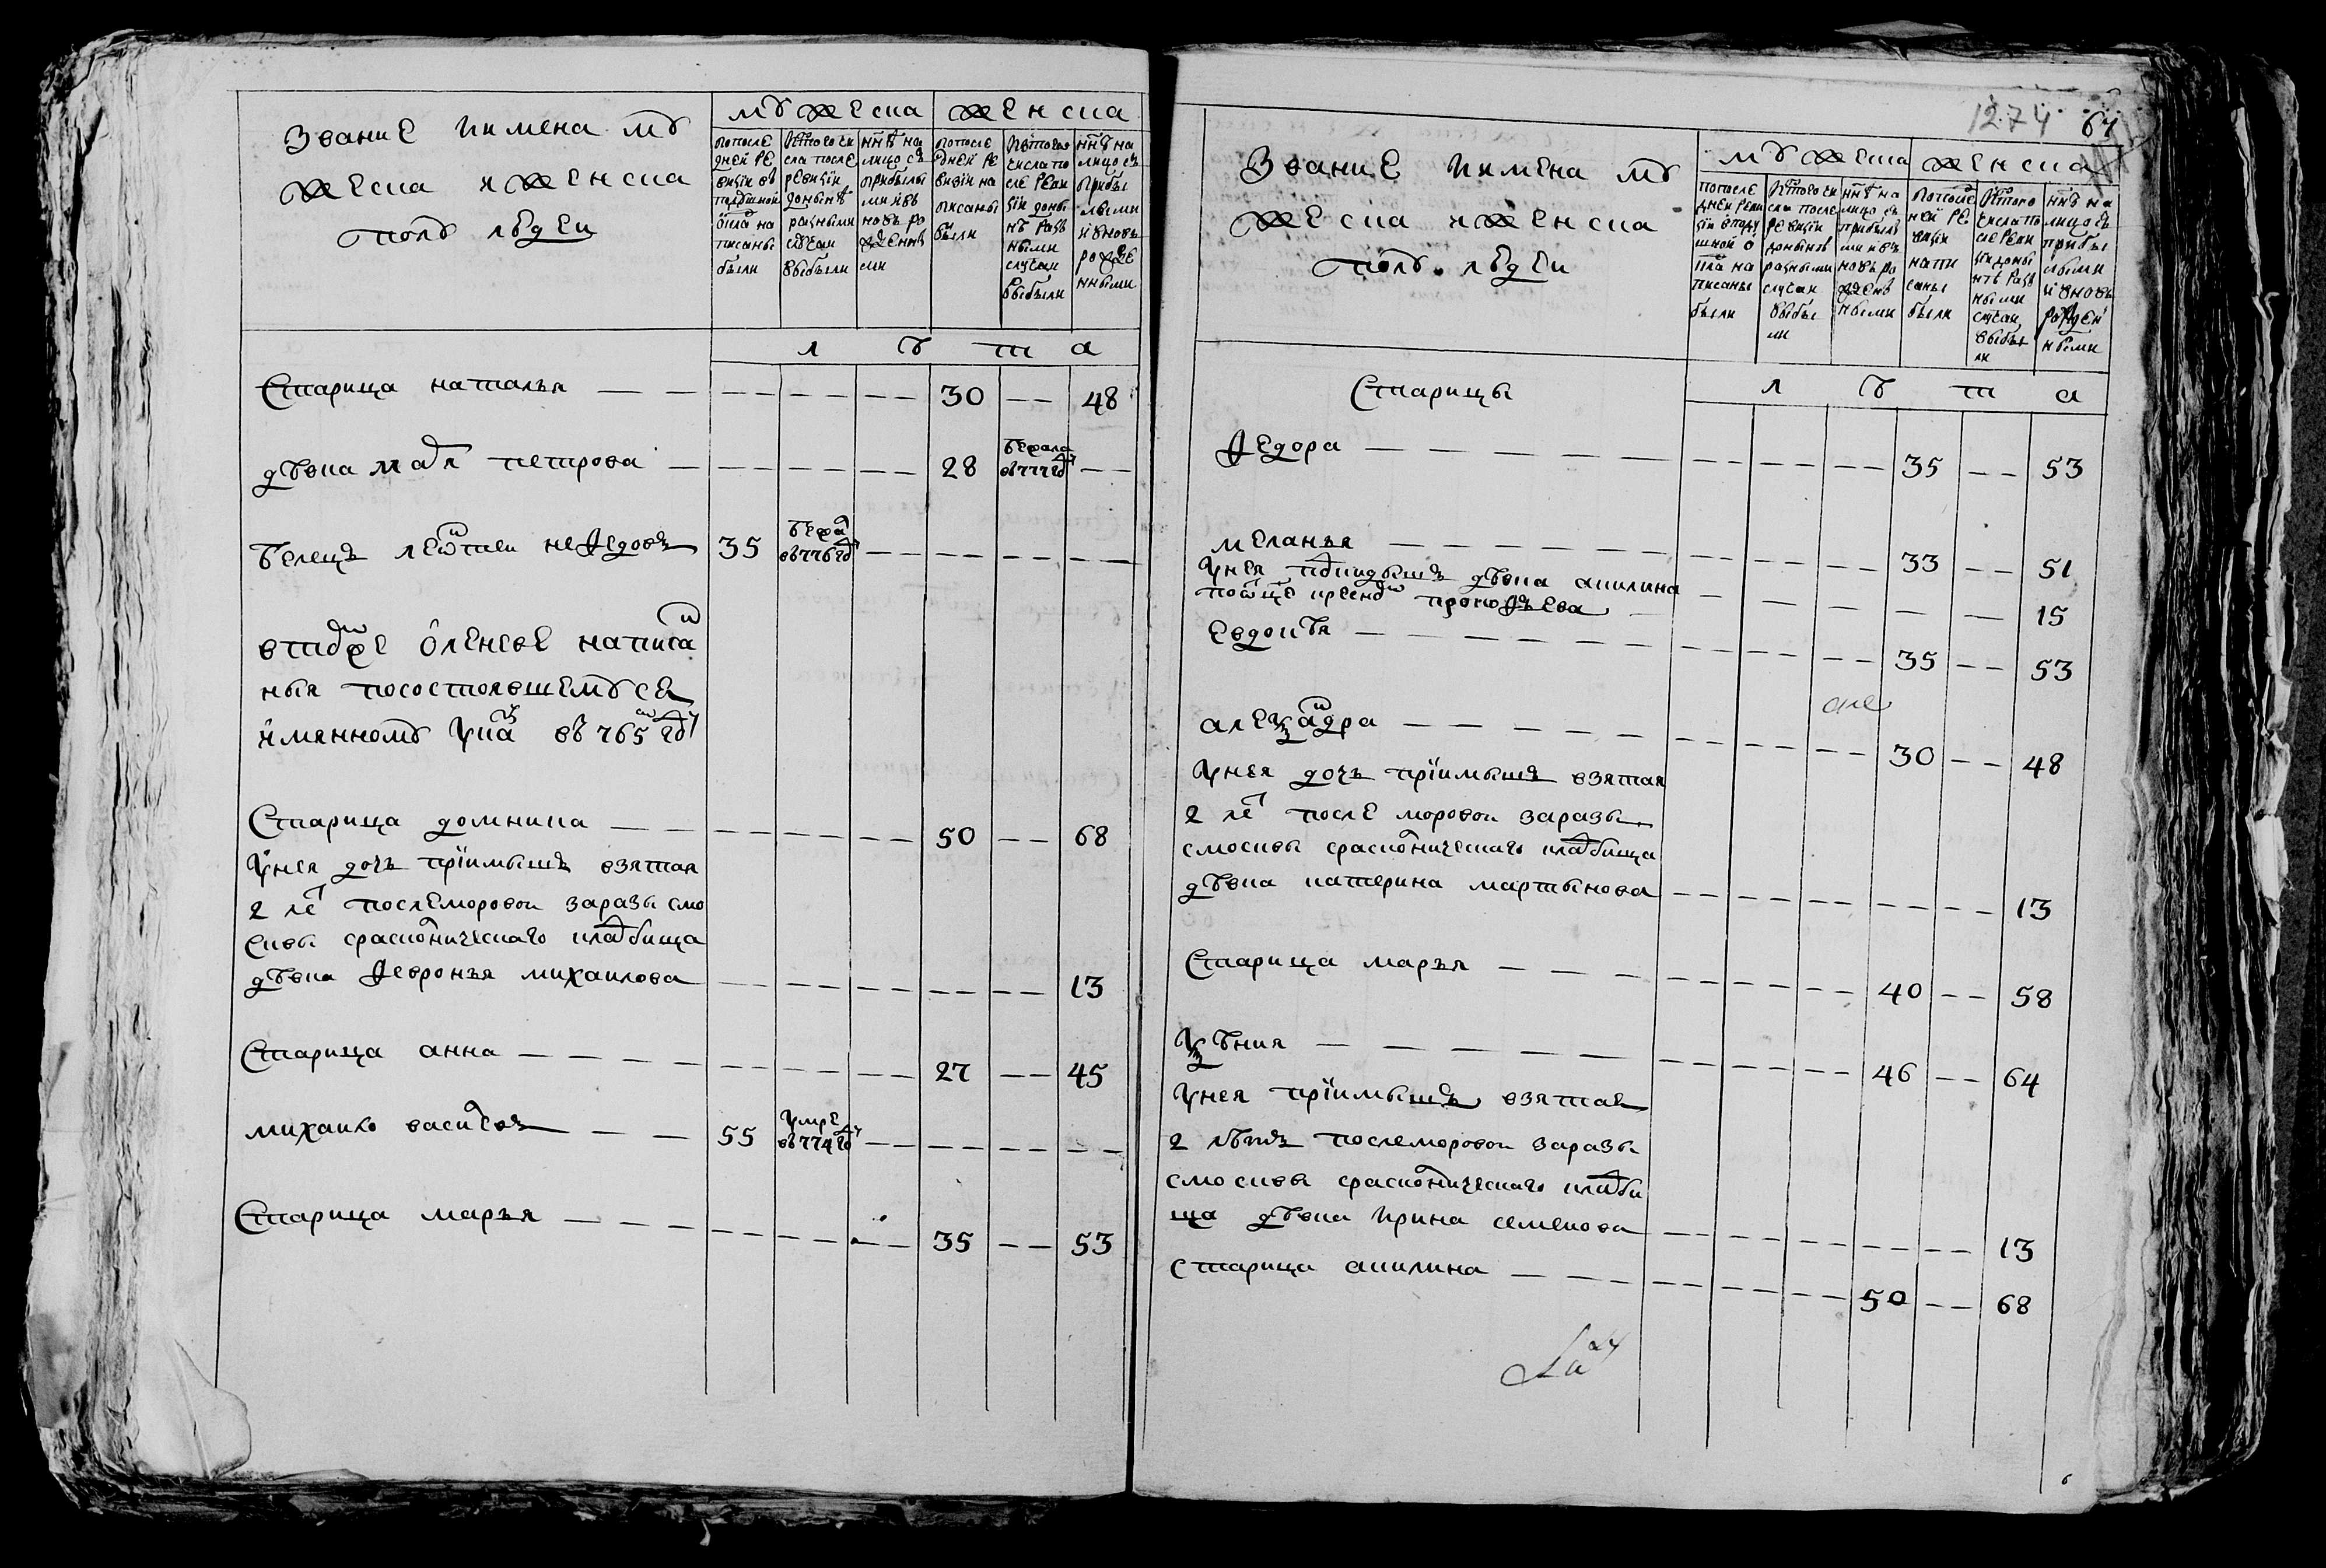 Звание иимена мꙋ
жеска иженска
полꙋ людей
мꙋжеска
женска
попосле
дней ре
визии въ
подушной
окла на
писаны
были
Истого чи
сла после
ревизии
донынѣ
разными
случаи
выбыли
ннѣ на
лицо съ
прибылы
ми ивъ
новь ро
жденны
ми
попосле
дней ре
визии на
писаны
были
Истого
числа по
сле реви
зии доны
нѣ разъ
ными
случаи
выбыли
ннѣ на
лицо съ
прибы
лыми
и вновь
рожде
нными
л ѣ т а
Старица наталья — — — — — 30 — 48
дѣвка мая петрова — — — — 28 бежала въ 777 году —
белецъ леонтей нефедовъ 35 бежал въ 776 году — — — —
втомже оленеве написа
ныя посостоявшемꙋся
имянномꙋ указу въ 765 году
Старица домника — — — — 50 — 68
унея дочь приимышъ взятая
2 лет послеморовои заразы смо
сквы сраскольническаго кладбища
дѣвка февронья михаилова — — — — — 13
Старица анна — — — — 27 — 45
михаило васильевъ — 55 умре въ 774 году — — — —
Старица марья — — — — 35 — 53
1274
67
Звание иимена мꙋ
жеска иженска
полꙋ людей
мꙋжеска
женска
попосле
дней реви
зии вподу
шной о
кла на
писаны
были
Истого чи
сла после
ревизии
донынѣ
разными
случаи
выбы
ли
ннѣ на
лицо съ
прибылы
ми ивъ
новь ро
жденъ
ными
попосле
ней ре
визии
напи
саны
были
Истого
числа по
сле реви
зии доны
нѣ разъ
ными
случаи
выбы
ли
ннѣ на
лицо съ
прибы
лыми
и вновь
рожден
ными
л ѣ т а
Старицы
Федора — — — — 35 — 53
меланья — — — — 33 — 51
унея подкидышъ дѣвка акилина
прокофьева — — — — — 15
Евдокѣя — — — — 35 — 53
алеѯандра — — — — 30 — 48
унея дочь приимышъ взятая
2 лет после моровои заразы
смосквы сраскольническаго кладбища
дѣвка катерина мартынова — — — — — 13
Старица марья — — — — 40 — 58
Ѯѣния — — — — 46 — 64
унея приимышъ взятая
2 лѣтъ послеморовои заразы
смосквы сраскольническаго кладби
ща дѣвка ирина семенова — — — — — 13
старица акилина — — — — 50 — 68